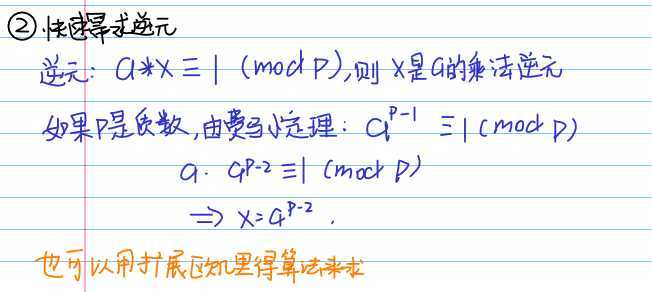 ②快速幂求逆元
逆元: a*x≡1 (mod p),则 x是a的乘法逆元
如果p是质数,由费马小定理: a^{p-1} ≡1(mod p)
a·a^{p-2}≡1 (mod p)
⇒ x=a^{p-2}.
也可以用扩展欧几里得算法来求